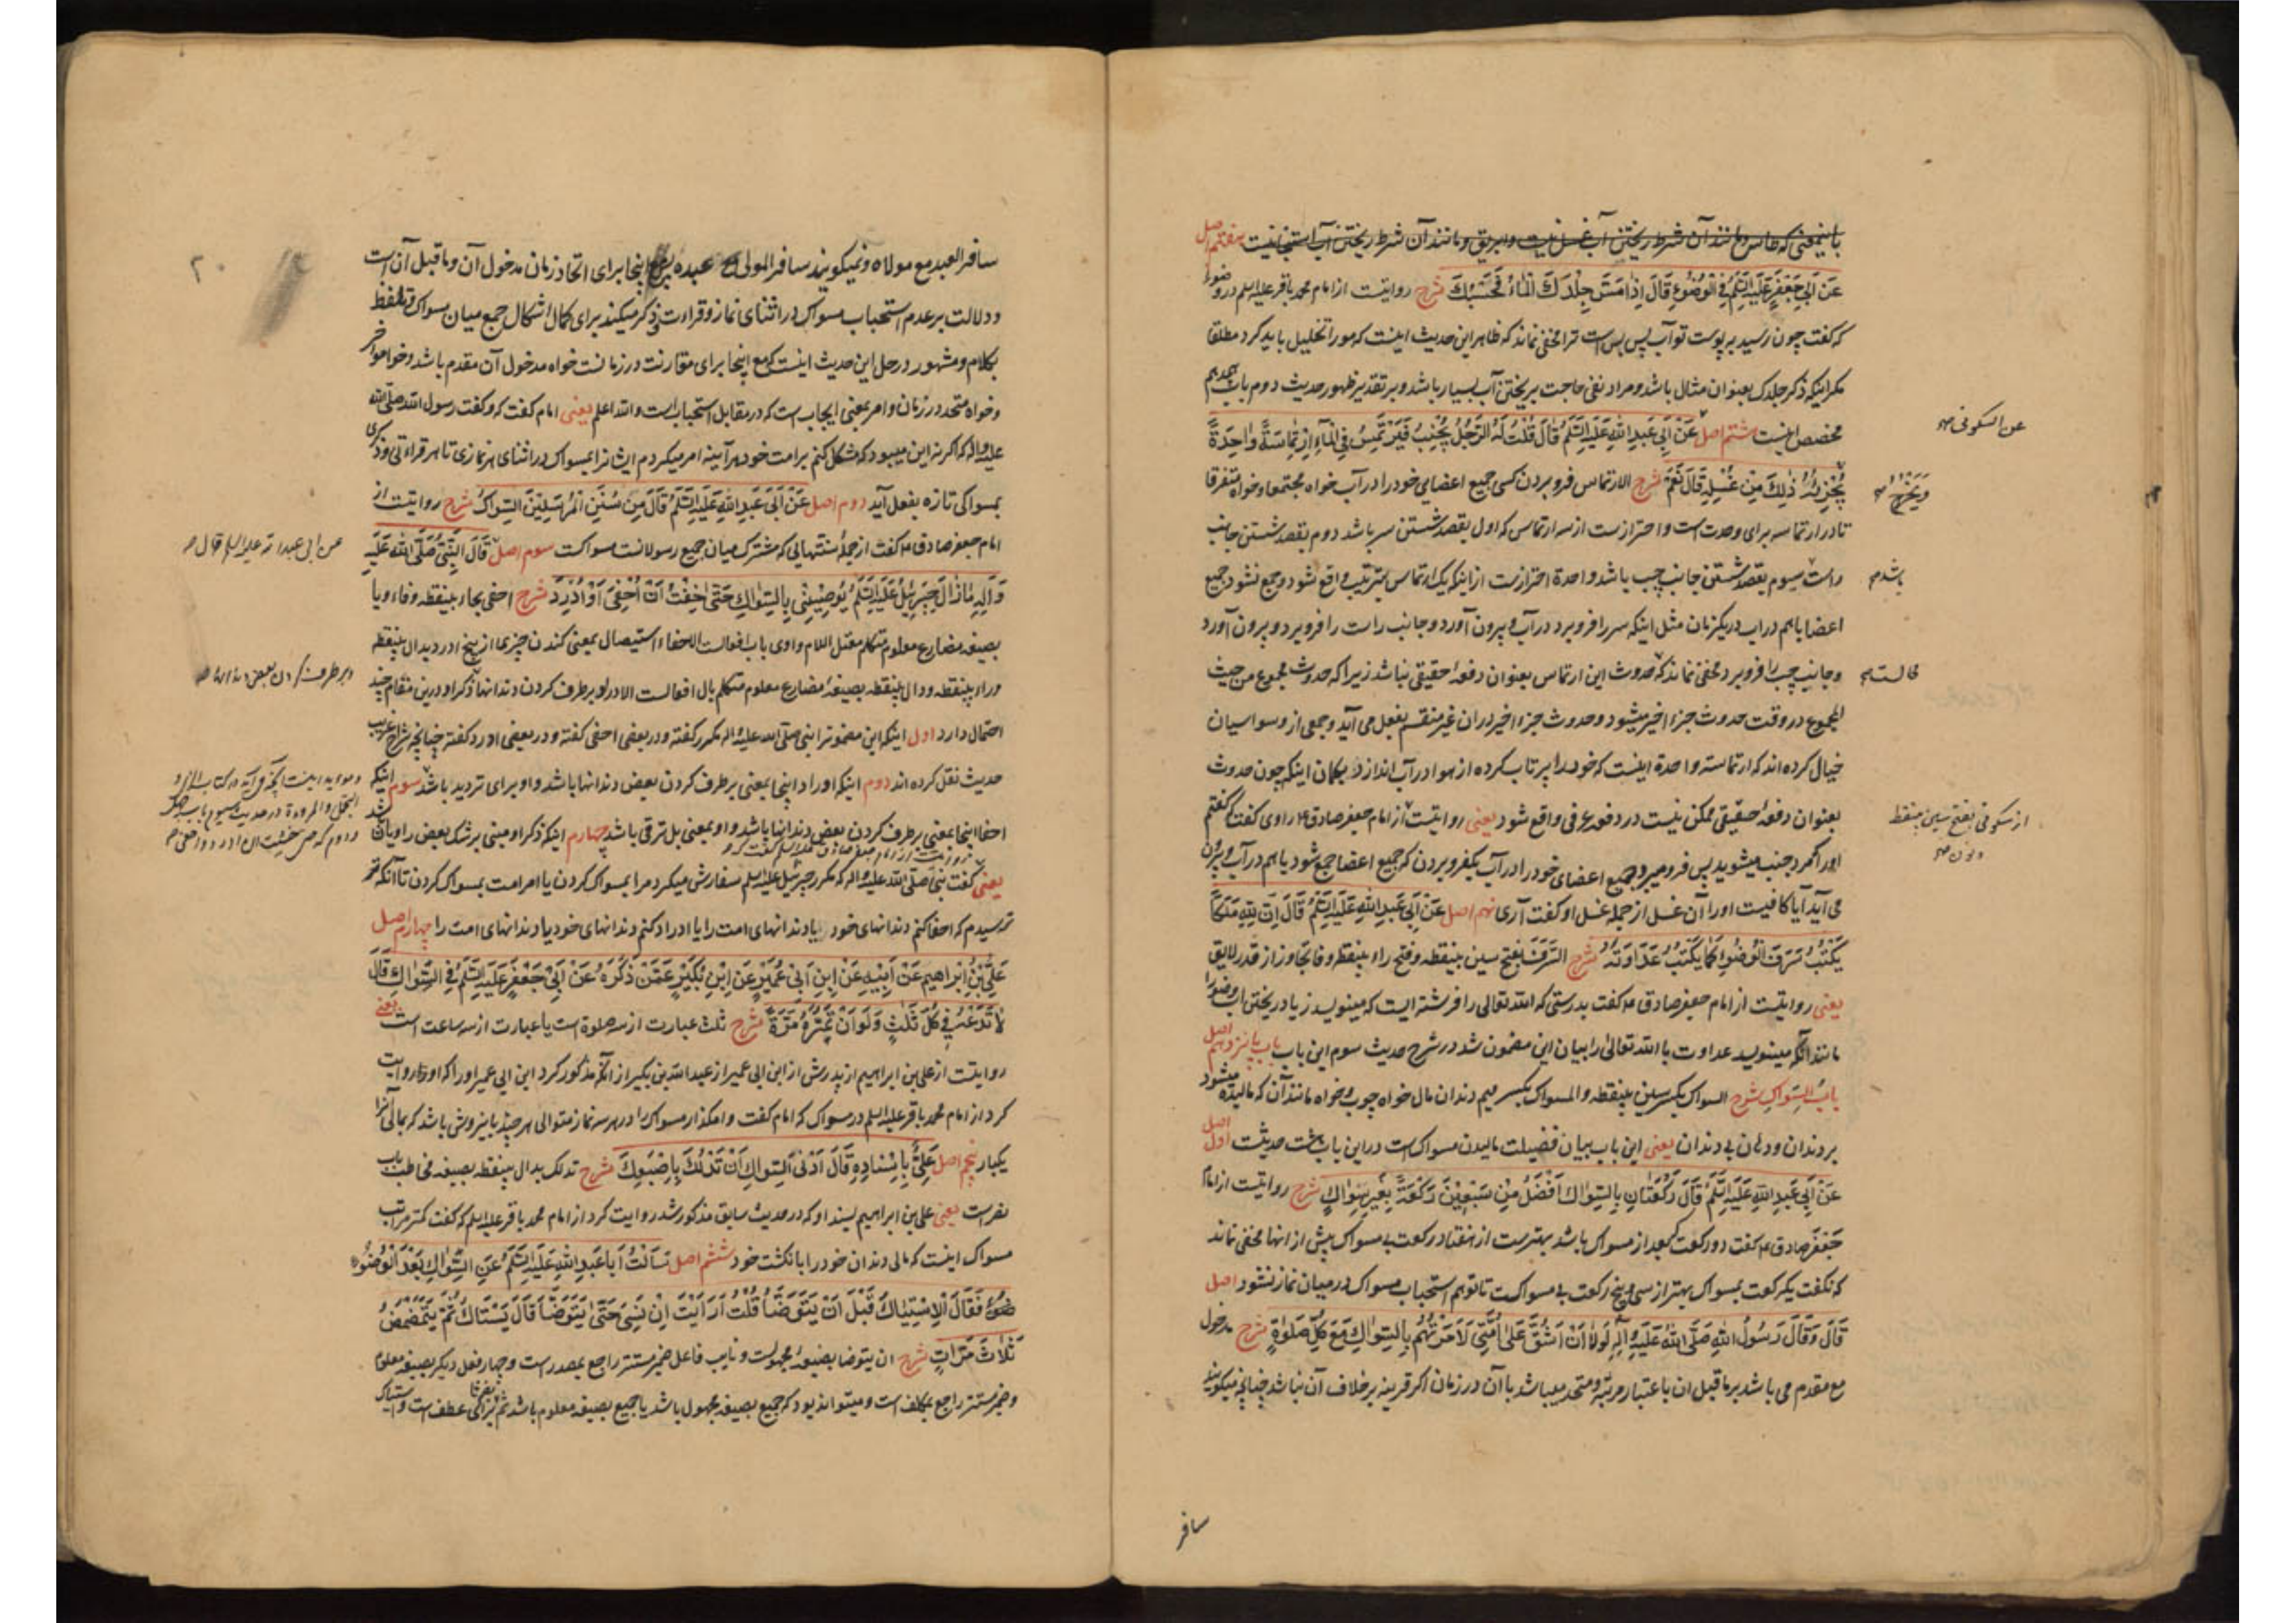 باینمعنی که طاس و مانند آن شرط ریختن آب غسل نیست و ابریق و مانند آن شرط ریختن آب استنجا نیست هفتم اصل
عَنْ اَبِی جَعْفَرٍ عَلَیْهِ السَّلَمُ فِی الْوُضُوءِ قَالَ اِذَا مَسَّ جِلْدَكَ الْمَاءُ فَحَسْبُكَ شرح روایتست از امام محمد باقر علیه السلم در وضوء
که گفت چون رسید بر پوست تو آب پس بس است ترا مخفی نماند که ظاهر این حدیث اینست که مو را تخلیل باید کرد مطلقا
مکر اینکه ذکر جلدک بعنوان مثال باشد و مراد نفی حاجت بریختن آب بسیار باشد و بر تقدیر ظهور حدیث دوم باب هجدهم
مخصص اینست هشتم اصل عَنْ اَبِی عَبْدِ اللهِ عَلَیْهِ السَّلَمُ قَالَ قُلْتُ لَهُ الرَّجُلُ یُجْنِبُ فَیَرْتَمِسُ فِی الْمَاءِ اِرْتِمَاسَةً وَاحِدَةً
عن السکونی صح
یُجْزِئُهُ ذٰلِكَ مِنْ غُسْلِهِ قَالَ نَعَمْ شرح الارتماس فرو بردن کسی جمیع اعضای خود را در آب خواه مجتمعا و خواه متفرقا
وَیَخْرُجُ صح
تا در ارتماسه برای وحدت است و احتراز ست از سه ارتماس که اول بقصد شستن سر باشد دوم بقصد شستن جانب
راست سیوم بقصد شستن جانب چپ باشد و احدة احتراز ست از اینکه یک ارتماس بترتیب واقع شود و جمع نشود جمیع
باشد صح
اعضا با هم در آب در یکزمان مثل اینکه سر را فرو برد در آب و بیرون آورد و جانب راست را فرو برد و بیرون آورد
و جانب چپ را فرو برد مخفی نماند که حدوث این ارتماس بعنوان دفعهٔ حقیقی نباشد زیرا که حدوث مجموع من حیث
المجموع در وقت حدوث جزء اخیر میشود و حدوث جزء اخیر در آن غیر منقسم بفعل می آید و جمعی از وسواسیان
خیال کرده اند که ارتماسة واحدة اینست که خود را پرتاب کرده از هوا در آب اندازد بگمان اینکه چون حدوث
بعنوان دفعهٔ حقیقی ممکن نیست در دفعه عرفی واقع شود یعنی روایتست از امام جعفر صادق ع راوی گفت که گفتم
از سکونی بفتح سین بینقطه
و نون صح
او را که مرد جنب میشود پس فرو میبرد جمیع اعضای خود را در آب یکفرو بردن که جمیع اعضا جمع شود با هم در آب و بیرون
می آید آیا کافیست او را آن غسل از جمله غسل او گفت آری نهم اصل عَنْ اَبِی عَبْدِ اللهِ عَلَیْهِ السَّلَمُ قَالَ اِنَّ لِلّٰهِ مَلَكًا
یَكْتُبُ سَرَفَ الْوُضُوءِ كَمَا یَكْتُبُ عَدَاوَتَهُ شرح السَّرَف بفتح سین بینقطه و فتح راء بینقطه و فا تجاوز از قدر لایق
یعنی روایتست از امام جعفر صادق ع گفت بدرستی که الله تعالی را فرشته ایست که مینویسد زیاد ریختن آب وضو را
مانند آنکه مینویسد عداوت با الله تعالی را بیان این مضمون شد در شرح حدیث سوم این باب باب پانزدهم اصل
بَابُ السِّوَاكِ شرح السواک بکسر سین بینقطه و المسواک بکسر میم دندان مال خواه چوب و خواه مانند آن که مالیده میشود
بر دندان و دهان بی دندان یعنی این باب بیان فضیلت مالیدن مسواک است در این باب هشت حدیثست اصل اول
عَنْ اَبِی عَبْدِ اللهِ عَلَیْهِ السَّلَمُ قَالَ رَكْعَتَانِ بِالسِّوَاكِ اَفْضَلُ مِنْ سَبْعِیْنَ رَكْعَةً بِغَیْرِ سِوَاكٍ شرح روایتست از امام
جعفر صادق ع گفت دو رکعت که بعد از مسواک باشد بهتر ست از هفتاد رکعت بی مسواک پیش از انها مخفی نماند
که نکفت یکرکعت بمسواک بهتر از سی و پنج رکعت بی مسواکست تا توهم استحباب مسواک در میان نماز نشود اصل
قَالَ وَقَالَ رَسُولُ اللهِ صَلَّی اللهُ عَلَیْهِ وَاٰلِهِ لَوْلَا اَنْ اَشُقَّ عَلٰی اُمَّتِی لَاَمَرْتُهُمْ بِالسِّوَاكِ مَعَ كُلِّ صَلٰوةٍ شرح مدخول
مع مقدم می باشد بر ما قبل ان باعتبار مرتبه و متحد میباشد با آن در زمان اکر قرینه بر خلاف آن نباشد چنانچه میکویند
سافر
۲۰
سافر العبد مع مولاه و نمیکویند سافر المولی مع عبده پس مع اینجا برای اتحاد زمان مدخول آن و ما قبل آن است
و دلالت بر عدم استحباب مسواک در اثنای نماز و قراءت و ذکر میکند برای کمال اشکال جمع میان مسواک و تلفظ
بکلام و مشهور در حل این حدیث اینست که مع اینجا برای مقارنت در زمانست خواه مدخول آن مقدم باشد و خواه مؤخر
و خواه متحد در زمان و امر بمعنی ایجاب است که در مقابل استحباب است و الله اعلم یعنی امام گفت که و گفت رسول الله صلی الله
علیه و اله که اکر نه این میبود که مشکل کنم بر امت خود هر آینه امر میکردم ایشانرا بمسواک در اثنای هر نمازی تا هر قراءتی و ذکری
بمسواکی تازه بفعل آید دوم اصل عَنْ اَبِی عَبْدِ اللهِ عَلَیْهِ السَّلَمُ قَالَ مِنْ سُنَنِ الْمُرْسَلِیْنَ السِّوَاكُ شرح روایتست از
امام جعفر صادق ع گفت از جملهٔ سنتهائی که مشترک میان جمیع رسولانست مسواکست سوم اصل قَالَ النَّبِیُّ صَلَّی اللهُ عَلَیْهِ
عن ابی عبد الله علیه السلم قال صح
وَاٰلِهِ مَا زَالَ جَبْرَئِیْلُ عَلَیْهِ السَّلَمُ یُوصِیْنِی بِالسِّوَاكِ حَتّٰی خِفْتُ اَنْ اُحْفِیَ اَوْ اَدْرَدَ شرح احفی بحاء بینقطه و فاء و یا
بصیغه مضارع معلوم متکلم معتل اللام واوی باب افعالست الاحفاء استیصال بمعنی کندن چیزی از بیخ ادرد بدال بینقطه
و راء بینقطه و دال بینقطه بصیغهٔ مضارع معلوم متکلم باب افعالست الادراد بر طرف کردن دندانها ذکر او درین مقام چند
احتمال دارد اول اینکه این مضمونرا نبی صلی الله علیه و اله مکرر گفته و در بعضی احفی گفته و در بعضی ادرد گفته چنانچه شراح غریب
حدیث نقل کرده اند دوم اینکه ادراد اینجا بمعنی بر طرف کردن بعض دندانها باشد و او برای تردید باشد سوم اینکه
احفا اینجا بمعنی بر طرف کردن بعض دندانها باشد و او بمعنی بل ترقی باشد چهارم اینکه ذکر او مبنی بر شک بعض راویان باشد
روایتست از امام جعفر صادق علیه السلم گفت که
یعنی گفت نبی صلی الله علیه و اله که مکرر جبرئیل علیه السلم سفارش میکرد مرا بمسواک کردن یا امر امت بمسواک کردن تا آنکه
ترسیدم که احفا کنم دندانهای خود یا دندانهای امت را یا ادراد کنم دندانهای خود یا دندانهای امت را چهارم اصل
عَلِیُّ بْنُ اِبْرَاهِیمَ عَنْ اَبِیْهِ عَنِ ابْنِ اَبِی عُمَیْرٍ عَنِ ابْنِ بُكَیْرٍ عَمَّنْ ذَكَرَهُ عَنْ اَبِی جَعْفَرٍ عَلَیْهِ السَّلَمُ فِی السِّوَاكِ قَالَ
لَا تَدَعْهُ فِی كُلِّ ثَلٰثٍ وَلَوْ اَنْ تُمِرَّهُ مَرَّةً شرح ثلث عبارت از سه صلوة است یا عبارت از سه ساعت است یعنی
روایتست از علی بن ابراهیم از پدرش از ابن ابی عمیر از عبد الله بن بکیر از آنکه مذکور کرد ابن ابی عمیر او را که او روایت
کرد از امام محمد باقر علیه السلم در مسواک که امام گفت وامکذار مسواک را در هر سه نماز متوالی هر چند باینروش باشد که بمالی آنرا
یکبار پنجم اصل عَلِیٌّ بِاِسْنَادِهِ قَالَ اَدْنَی السِّوَاكِ اَنْ تَدْلُكَ بِاِصْبَعِكَ شرح تدلک بدال بینقطه بصیغه مخاطب باب
نصر ست یعنی علی بن ابراهیم بسند او که در حدیث سابق مذکور شد روایت کرد از امام محمد باقر علیه السلم که گفت کمتر مراتب
مسواک اینست که مالی دندان خود را بانکشت خود ششم اصل سَاَلْتُ اَبَا عَبْدِ اللهِ عَلَیْهِ السَّلَمُ عَنِ السِّوَاكِ بَعْدَ الْوُضُوءِ
فَقَالَ الْاِسْتِیَاكُ قَبْلَ اَنْ یَتَوَضَّأَ قُلْتُ اَرَاَیْتَ اِنْ نَسِیَ حَتّٰی یَتَوَضَّأَ قَالَ یَسْتَاكُ ثُمَّ یَتَمَضْمَضُ
ثَلٰاثَ مَرَّاتٍ شرح ان یتوضا بصیغهٔ مجهولست و نایب فاعل ضمیر مستتر راجع بمصدر ست و چهار فعل دیکر بصیغه معلوم
و ضمیر مستتر راجع بمکلف است و میتواند بود که جمیع بصیغه مجهول باشد یا جمیع بصیغه معلوم باشد ثم برای عطف است